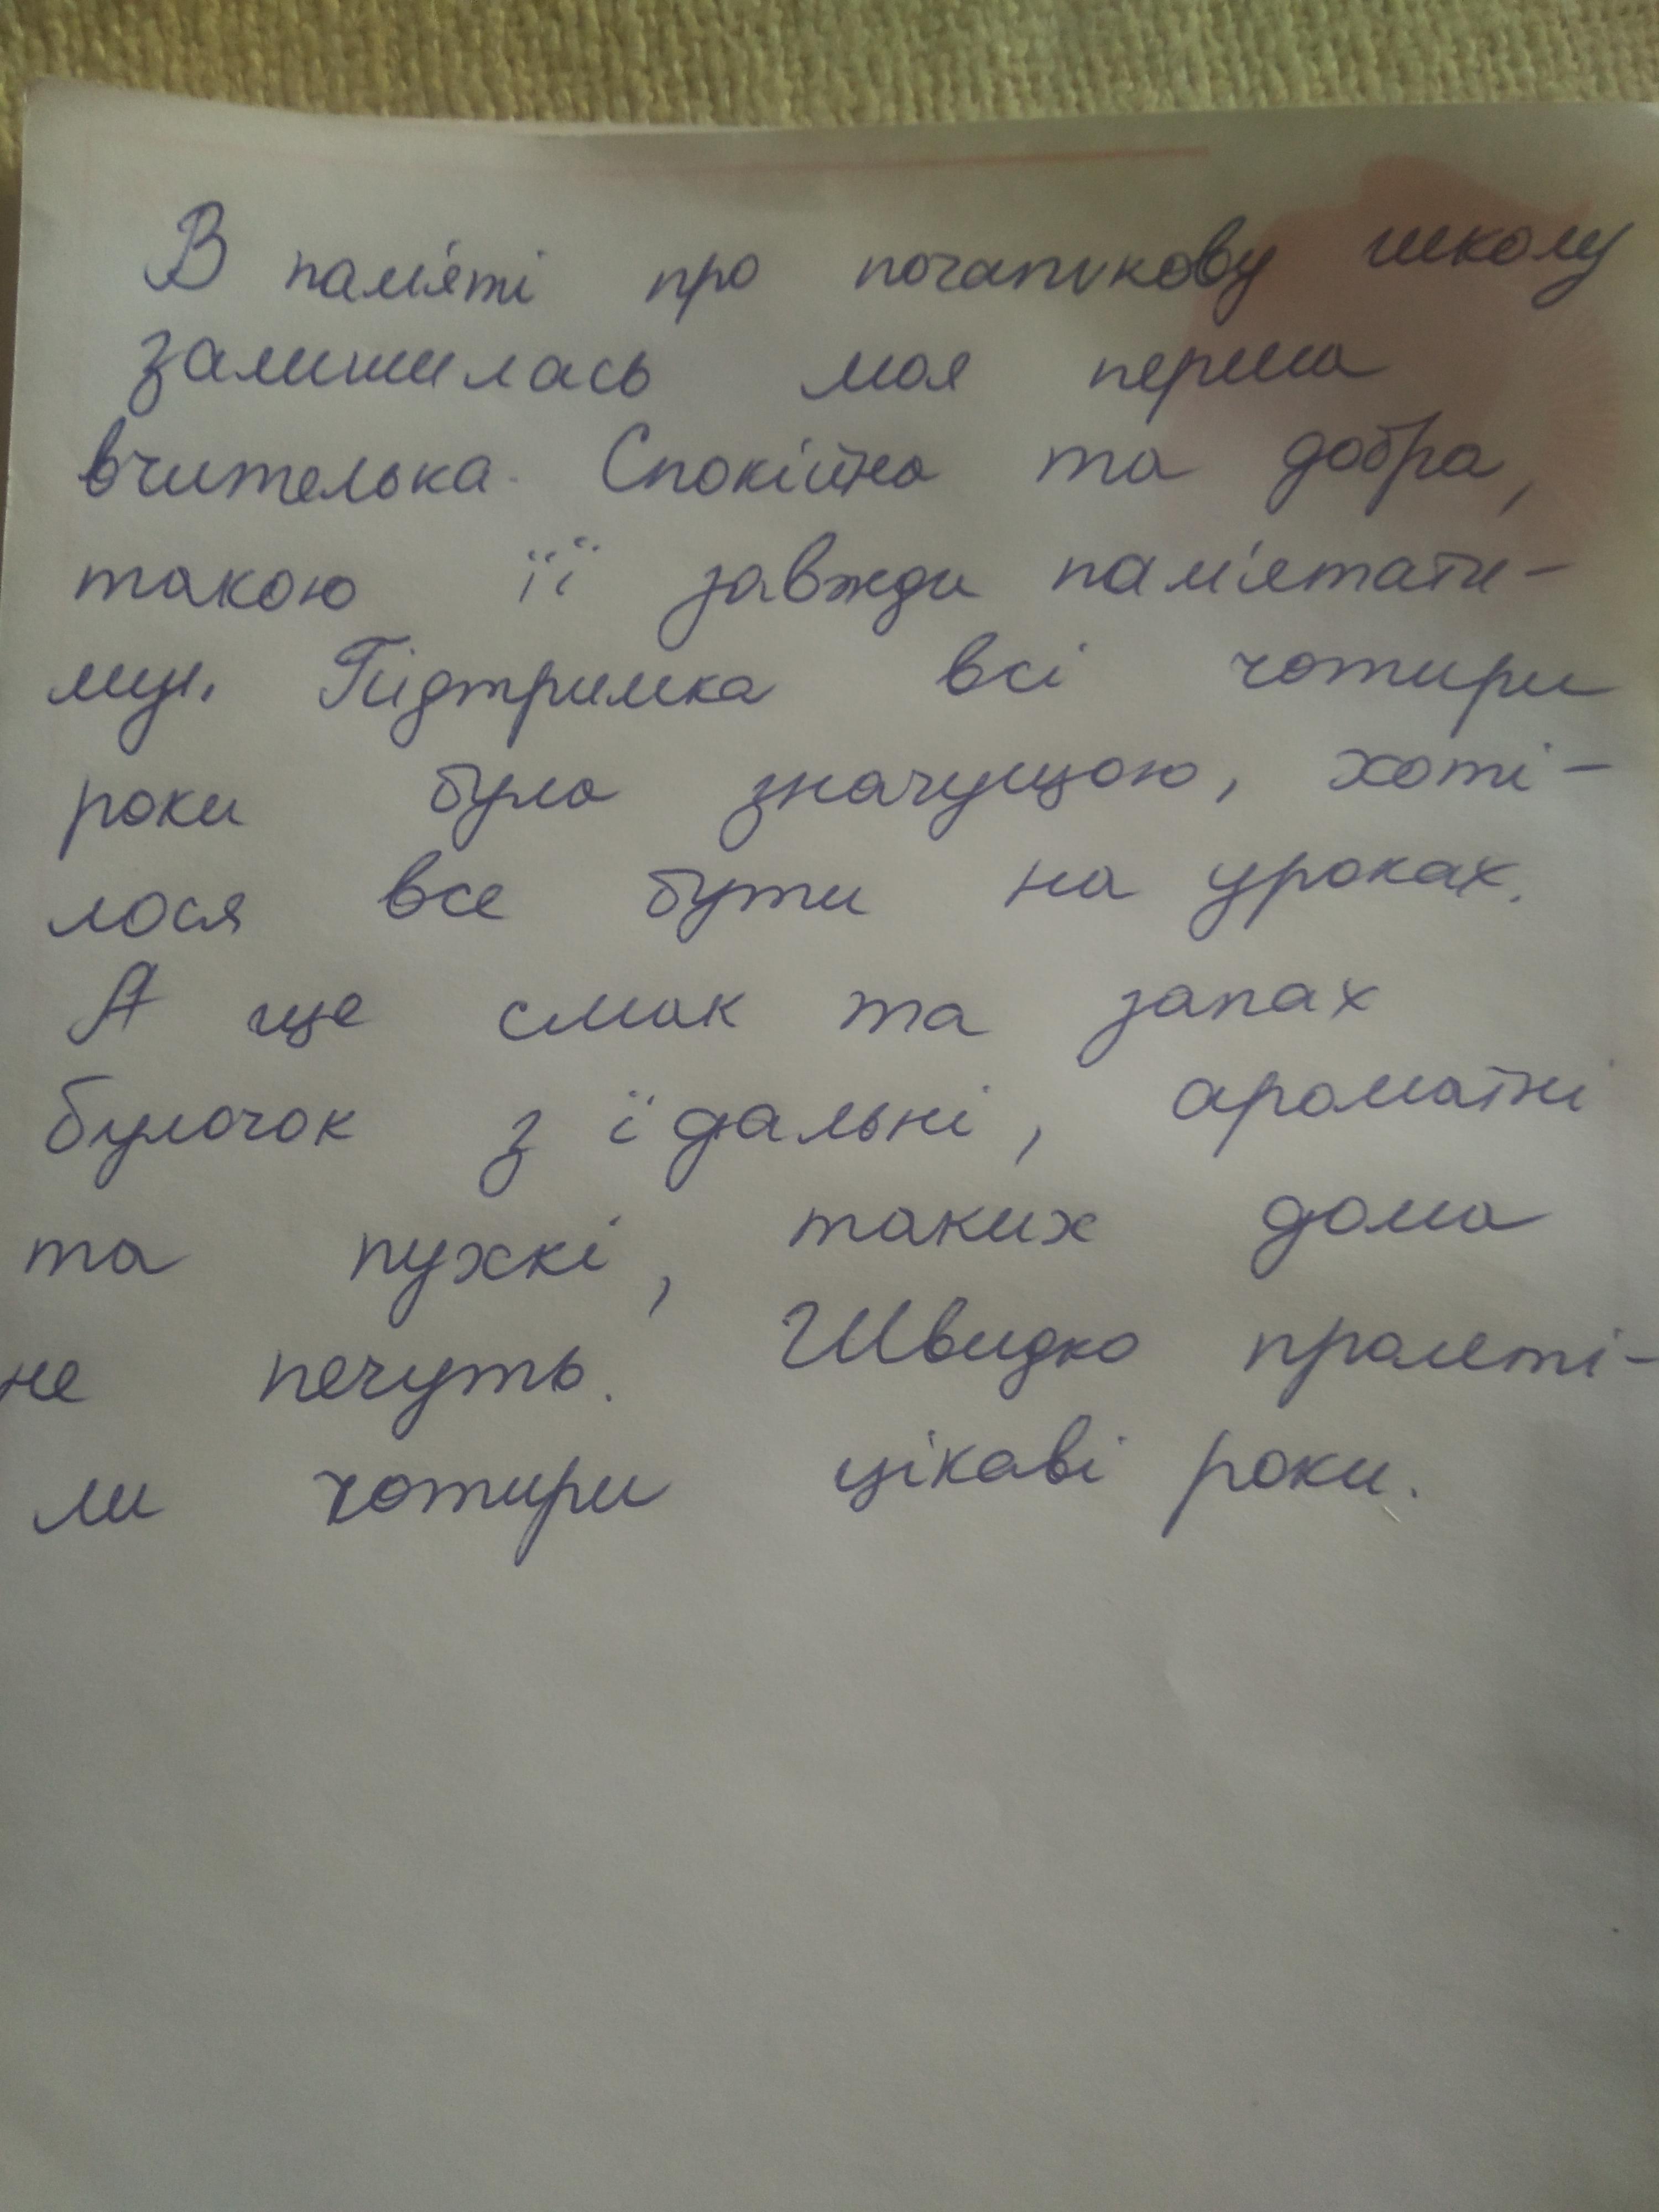 В пам'яті про початкову школу
залишилась моя перша
вчителька. Спокійна та добра,
такою її завжди пам'ятати-
му. Підтримка всі чотири
роки була значущою, хоті-
лося все бути на уроках.
А ще смак та запах
булочок з їдальні, ароматні
та пухкі, таких дома
не печуть. Швидко пролеті-
ли чотири цікаві роки.